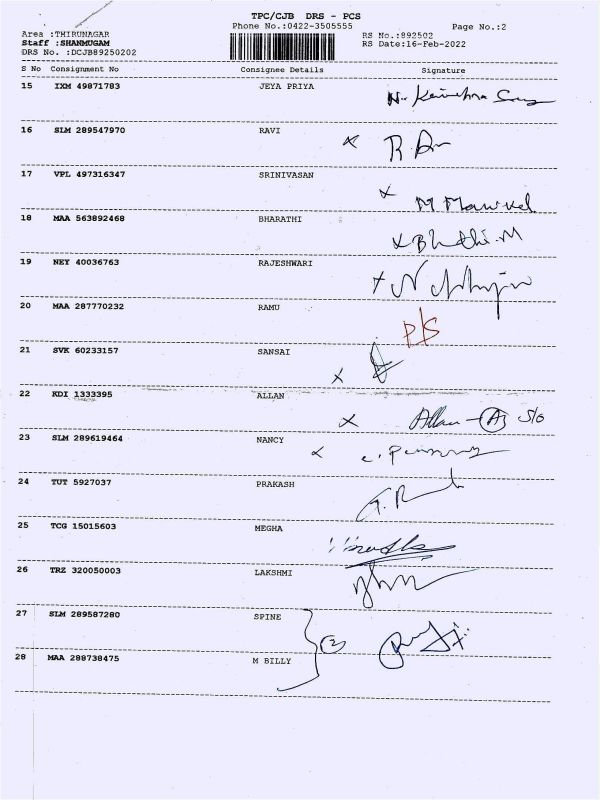 TPC/CJB DRS - PCS
Phone No.:0422-3505555 Page No.:2
Area :THIRUNAGAR RS No.:892502
Staff :SHANMUGAM RS Date:16-Feb-2022
DRS No. :DCJB89250202
S No Consignment No Consignee Details Signature
15 IXM 49871783 JEYA PRIYA
16 SLM 289547970 RAVI
17 VPL 497316347 SRINIVASAN
18 MAA 563892468 BHARATHI
19 NEY 40036763 RAJESHWARI
20 MAA 287770232 RAMU P/S
21 SVK 60233157 SANSAI
22 KDI 1333395 ALLAN Allan - A S/o
23 SLM 289619464 NANCY
24 TUT 5927037 PRAKASH
25 TCG 15015603 MEGHA
26 TRZ 320050003 LAKSHMI
27 SLM 289587280 SPINE 2
28 MAA 288738475 M BILLY